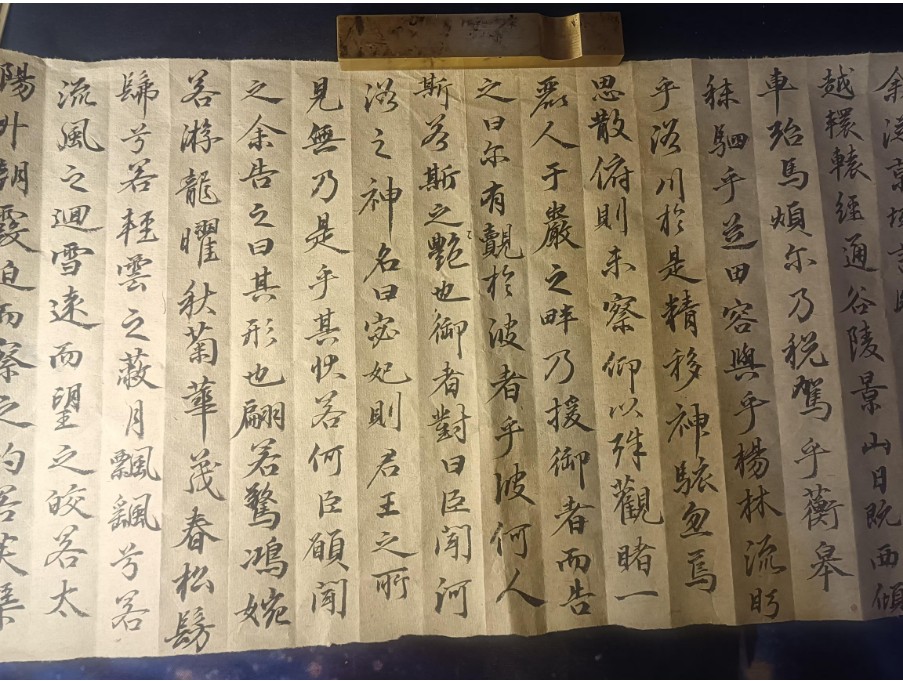 余從京域言歸
越轘轅經通谷陵景山日既西傾
車殆馬煩尔乃税駕乎蘅皋
秣駟乎芝田容與乎楊林流眄
乎洛川於是精移神駭忽焉
思散俯則未察仰以殊觀睹一
麗人于巖之畔乃援御者而告
之曰尔有覿於彼者乎彼何人
斯若斯之艷也御者對曰臣聞河
洛之神名曰宓妃則君王之所
見無乃是乎其狀若何臣願聞
之余告之曰其形也翩若驚鴻婉
若游龍曜秋菊華茂春松髣
髴兮若輕雲之蔽月飄颻兮若
流風之迴雪遠而望之皎若太
陽升朝霞迫而察之灼若芙蕖